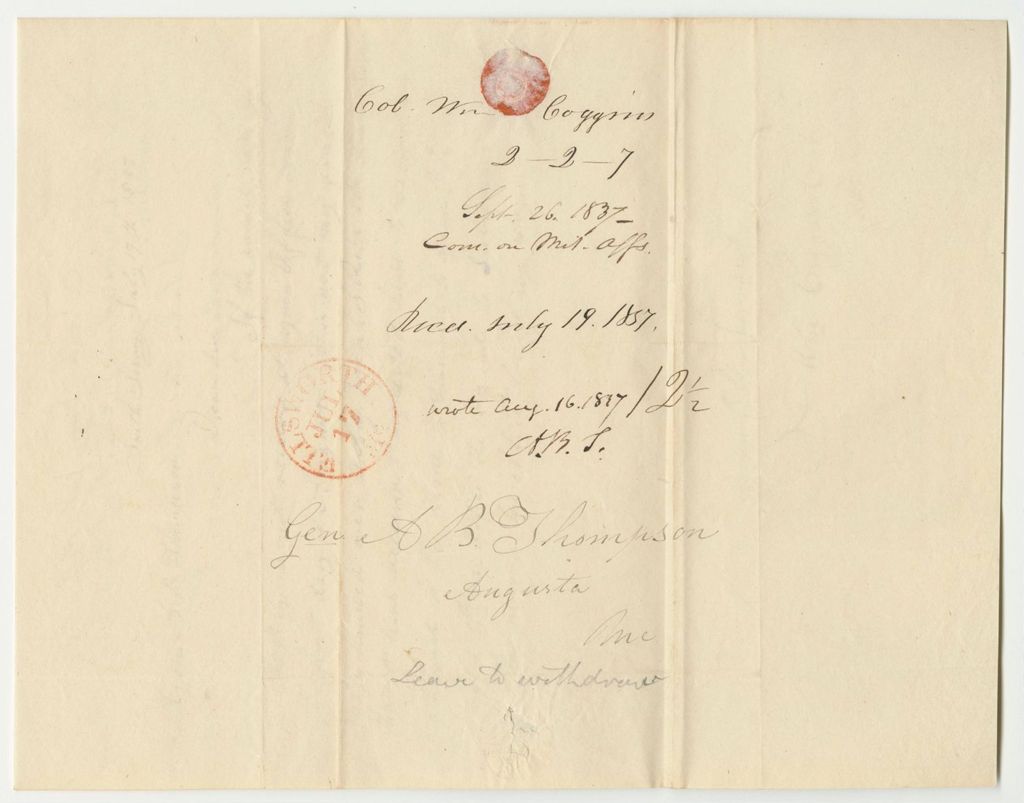 Col. Wm Coggins
2 - 2 - 7
Sept. 26. 1837-
Com. on Mil. Affs.
Recd. July 19. 1837.
ELLSWORTH Me
JUL
17
wrote Aug. 16. 1837 / 2 1/2
A.B.T.
Gen. A B. Thompson
Augusta
Me
Leave to withdraw